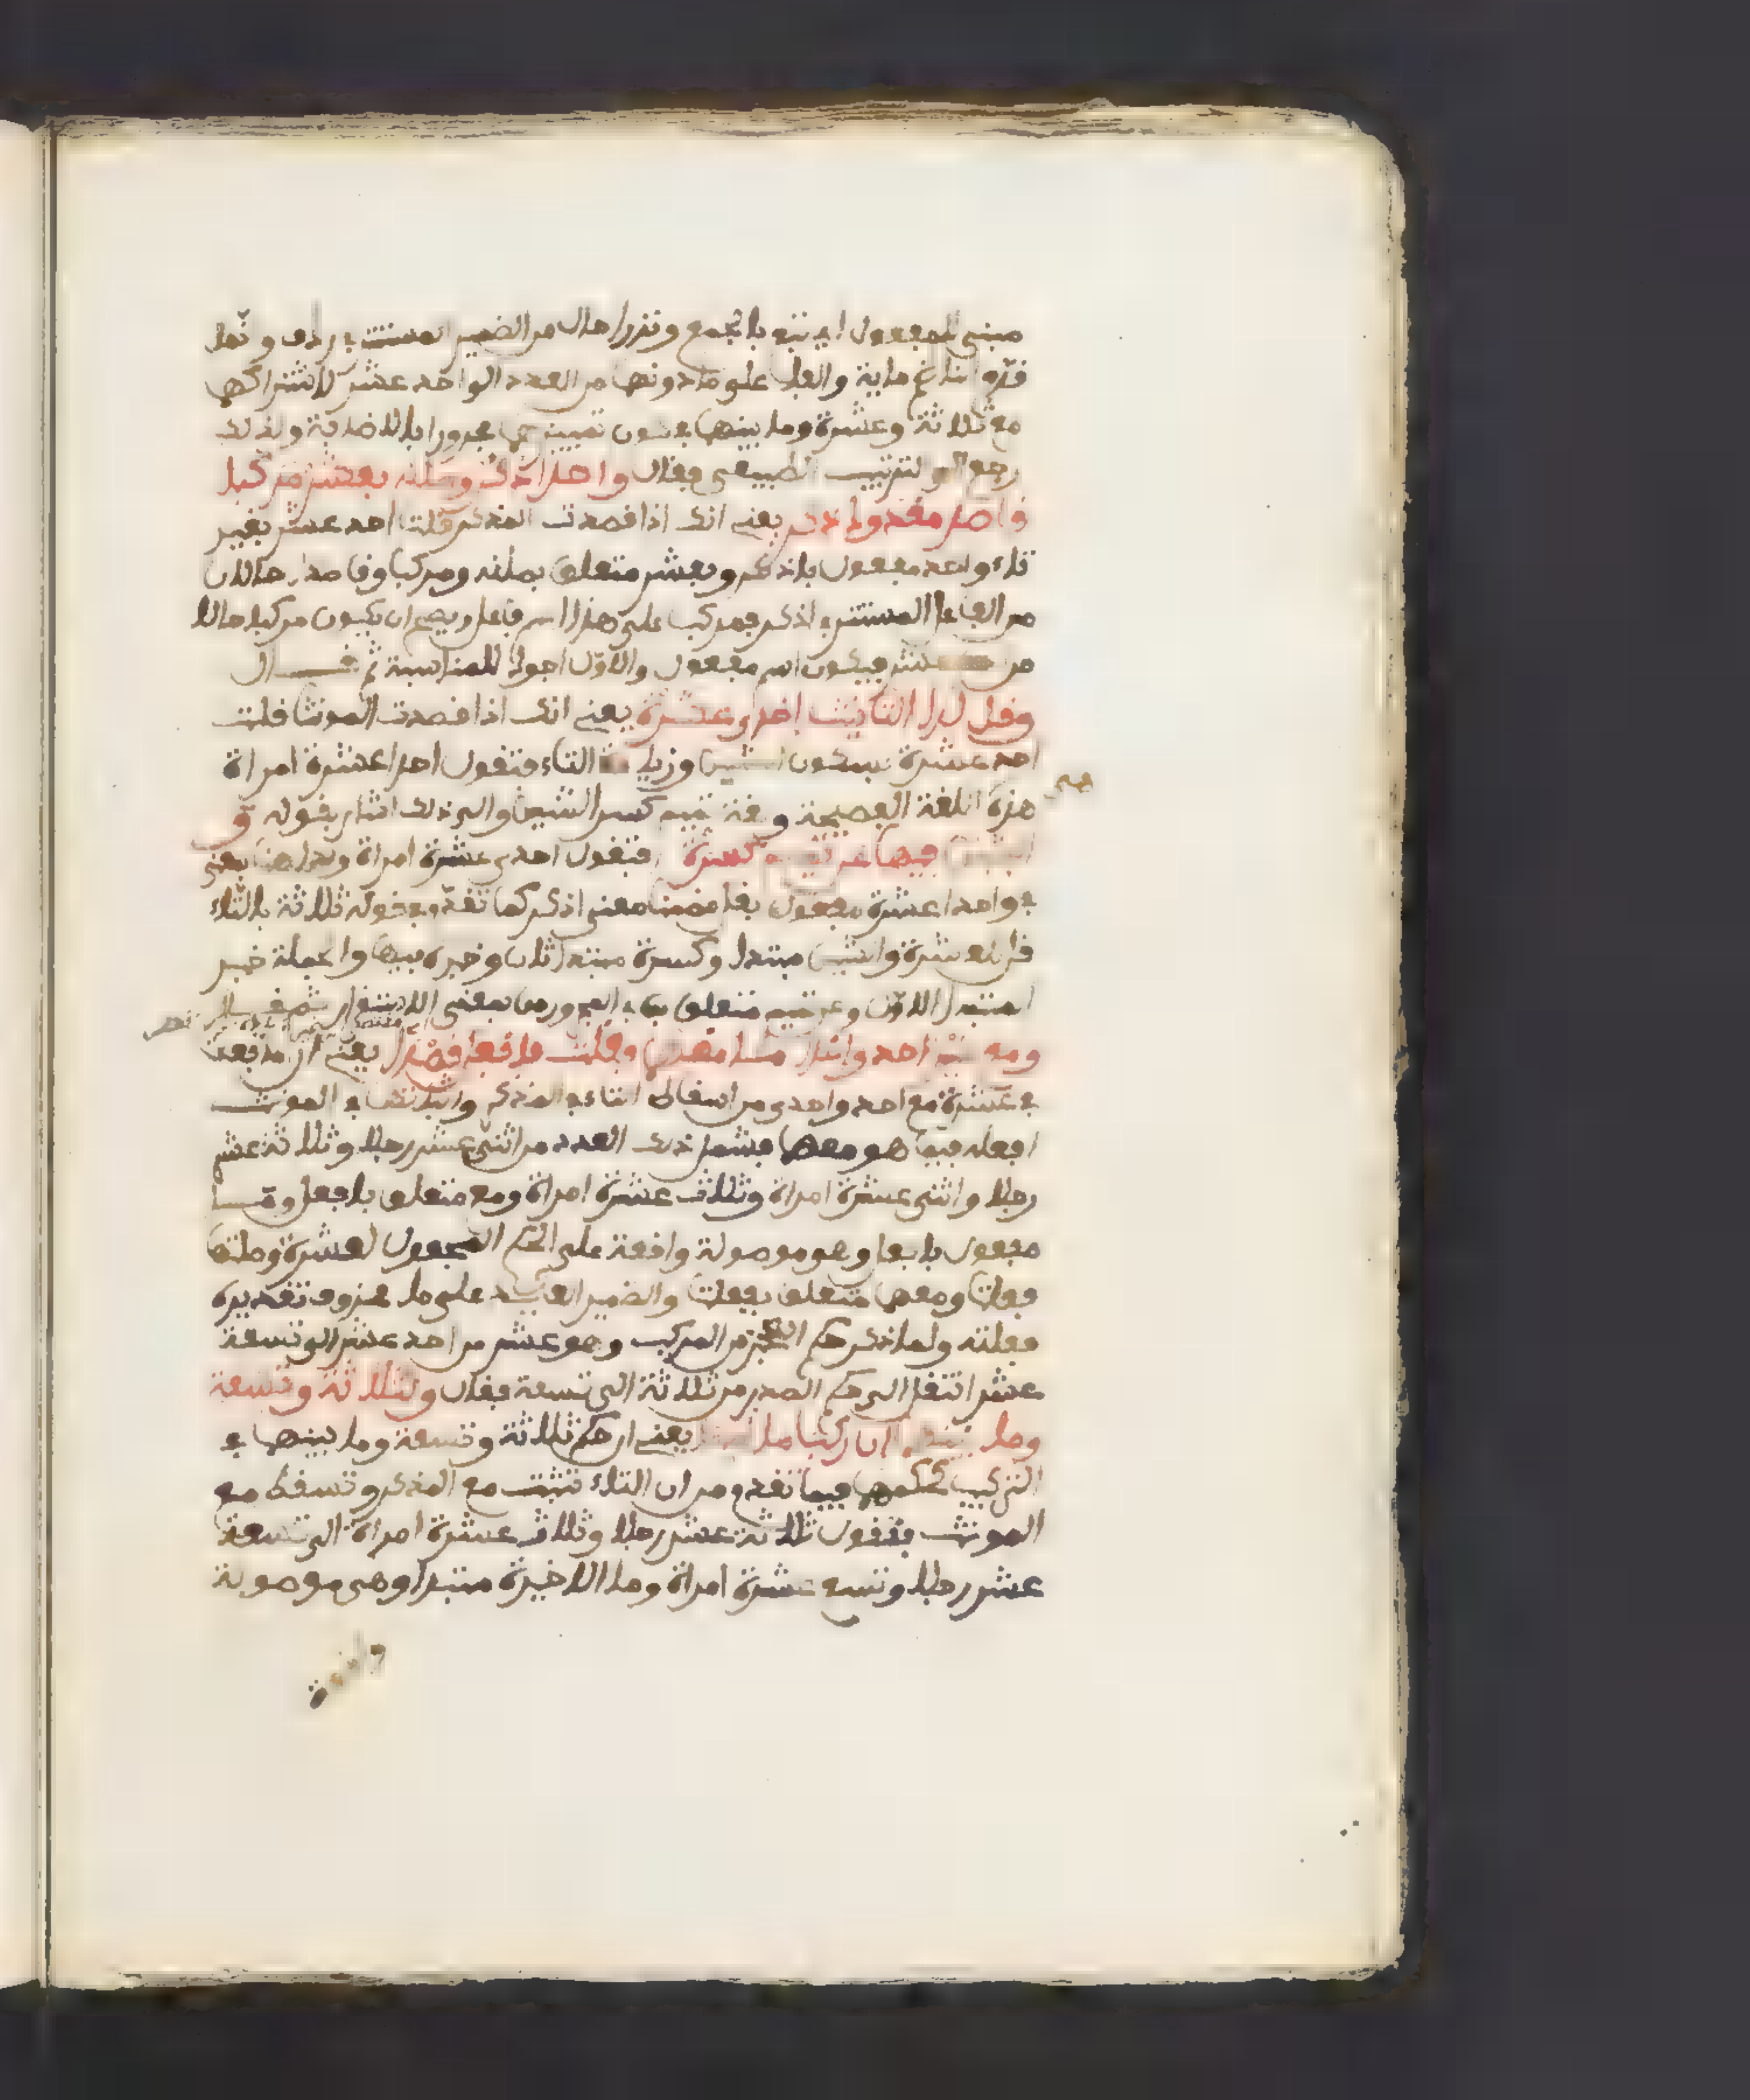 مبني للمفعول اي تبع بالجمع ونزرا حال من الضمير المستتر في ردف ولما
قدم الناظم ماية والفا على ما دونها من العدد الواحد عشر لاشتراكها
مع ثلاثة وعشرة وما بينهما في كون تمييزها مجرورا بالاضافة ولذلك
رجع الى الترتيب الطبيعي فقال واحد اذكر وصلنه بعشر مركبا
قاصد معدود ذكر يعني انك اذا قصدت المذكر قلت احد عشر بغير
تاء واحد مفعول باذكر وبعشر متعلق بصلنه ومركبا وقاصد حالان
من الفاعل المستتر في اذكر فمركب على هذا اسم فاعل ويصح ان يكون مركبا حالا
من عشر فيكون اسم مفعول والاول اجود للمناسبة ثم قال
وقل لدا التانيث احدى عشرة يعني انك اذا قصدت المونث قلت
احد عشرة بسكون الشين وزيادة التاء فتقول احدا عشرة امراة
هذه اللغة الفصيحة ولغة تميم كسر الشين والى ذلك اشار بقوله و
الشين فيها عن تميم كسرة فتقول احدى عشرة امراة ولدا هنا بمعنى
في واحدا عشرة مفعول بقل مضمنا معنى اذكر كما تقدم في قوله ثلاثة بالتاء
قل لعشرة والشين مبتدا وكسرة مبتدا ثان وخبره فيها والجملة خبر
المبتدا الاول وعن تميم متعلق بما في المجرور من معنى الاستقرار ثم قال
ومع غير احد واحدى ما معهما فعلت فافعل قصدا يعني ان ما فعلت
في عشرة مع احد واحدى من اسقاط التاء في المذكر واثباتها في المونث
افعله فيما هو معها فشمل ذلك العدد من اثنى عشر رجلا وثلاثة عشر
رجلا واثنى عشرة امراة وثلاث عشرة امراة ومع متعلق بافعل وما
مفعول بافعل وهو موصولة واقعة على الحكم المجعول لعشرة وصلتها
فعلت ومعهما متعلق بفعلت والضمير العايد على ما محذوف تقديره
فعلته ولما ذكر حكم العجز من المركب وهو عشر من احد عشر الى تسعة
عشر انتقل الى حكم الصدر من ثلاثة الى تسعة فقال ولثلاثة وتسعة
وما بينهما ان ركبا ما قدما يعني ان حكم ثلاثة وتسعة وما بينهما في
التركيب كحكمها فيما تقدم من ان التاء تثبت مع المذكر وتسقط مع
المونث فتقول ثلاثة عشر رجلا وثلاث عشرة امراة الى تسعة
عشر رجلا وتسع عشرة امراة وما الاخيرة مبتدا وهي موصولة